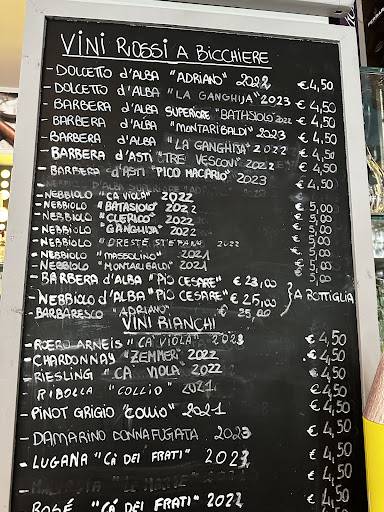 VINI ROSSI A BICCHIERE
- DOLCETTO d'ALBA "ADRIANO" 2022 €4,50
- DOLCETTO d'ALBA "LA GANGHIJA" 2023 €4,50
- BARBERA d'ALBA SUPERIORE "BATASIOLO" 2022 €4,50
- BARBERA d'ALBA "MONTARIBALDI" 2023 €4,50
- BARBERA d'ALBA "LA GANGHIJA" 2022 €4,50
- BARBERA d'ASTI "TRE VESCOVI" 2022 €4,50
- BARBERA d'ASTI "PICO MACARIO" 2023 €4,50
- NEBBIOLO "CA VIOLA" 2022 €5,00
- NEBBIOLO "BATASIOLO" 2022 €5,00
- NEBBIOLO "CLERICO" 2022 €5,00
- NEBBIOLO "GANGHIJA" 2022 €5,00
- NEBBIOLO "ORESTE STEFANO" 2022 €5,00
- NEBBIOLO "MASSOLINO" 2021 €5,00
- NEBBIOLO "MONTARIBALDI" 2021 €5,00
- BARBERA d'ALBA "PIO CESARE" €23,00
- NEBBIOLO d'ALBA "PIO CESARE" €25,00 } A BOTTIGLIA
- BARBARESCO "ADRIANO" €25,00
VINI BIANCHI
- ROERO ARNEIS "CA' VIOLA" 2023 €4,50
- CHARDONNAY "ZEMMER" 2022 €4,50
- RIESLING "CA VIOLA" 2022 €4,50
- RIBOLLA "COLLIO" 2021 €4,50
- PINOT GRIGIO "COLLIO" 2021 €4,50
- DAMARINO DONNAFUGATA 2023 €4,50
- LUGANA "CA' DEI FRATI" 2023 €4,50
€4,50
- ROSÉ "CA' DEI FRATI" 2022 €4,50